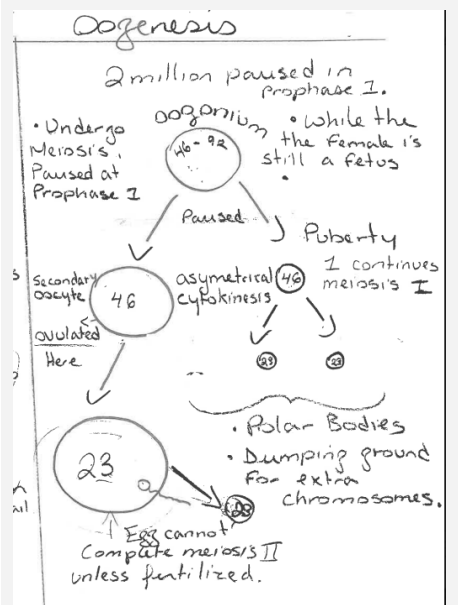 Oogenesis
2 million paused in
Prophase I.
oogonium
• Undergo
Meiosis,
Paused at
Prophase I
• While the
the female is
still a fetus
46-92
Paused
Puberty
1 continues
meiosis I
Secondary
oocyte
46
asymetrical
cytokinesis
46
ovulated
Here
23
23
• Polar Bodies
• Dumping ground
For extra
chromosomes.
23
23
Egg cannot
Compute meiosis II
unless fertilized.